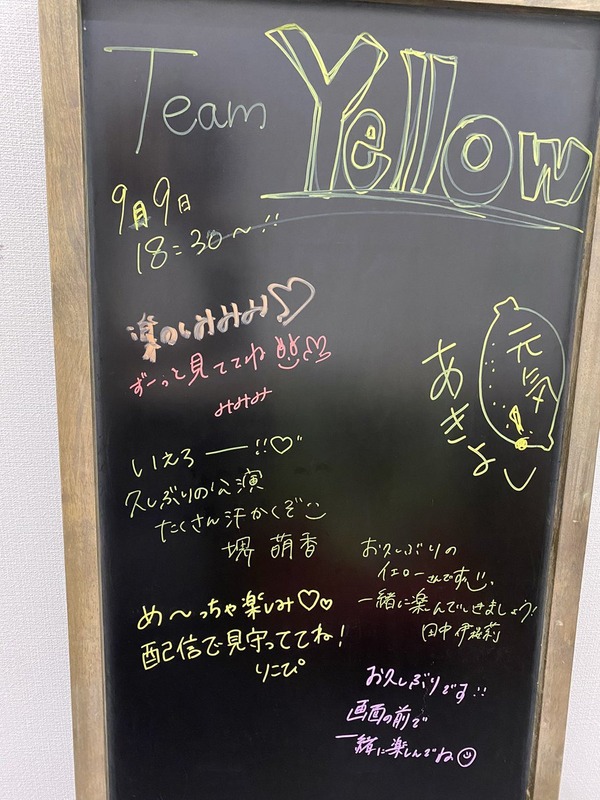 Team Yellow
9月9日
18:30〜!!
楽のしみみみ♡
ずーっと見ててね
みみみ
元気!
あきよし
いえろー!!♡
久しぶりの公演
たくさん汗かくぞ
堺 萌香
め〜っちゃ楽しみ♡♡
配信で見守っててね!
りこぴ
お久しぶりの
イエローさんです
一緒に楽しんでいきましょう!
田中 伊桜莉
お久しぶりです!!
画面の前で
一緒に楽しんでね☺